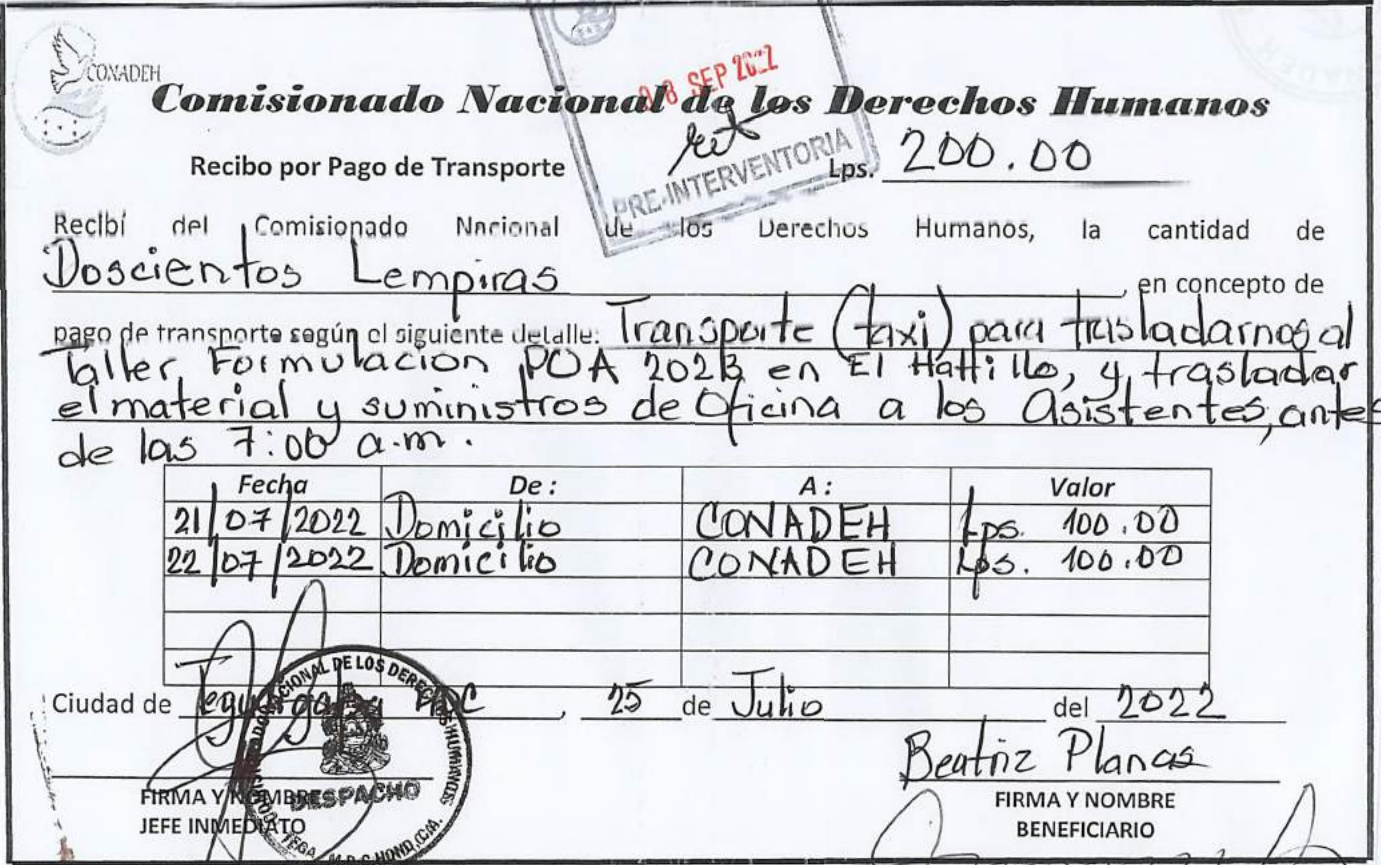 CONADEH
Comisionado Nacional de los Derechos Humanos
08 SEP 2022
PRE-INTERVENTORIA
Recibo por Pago de Transporte Lps. 200.00
Recibí del Comisionado Nacional de los Derechos Humanos, la cantidad de
Doscientos Lempiras, en concepto de
pago de transporte según el siguiente detalle: Transporte (taxi) para trasladarnos al
Taller Formulacion POA 2023 en El Hattillo, y, trasladar
el material y suministros de Oficina a los Asistentes, antes
de las 7:00 a.m.
Fecha De: A: Valor
21/07/2022 Domicilio CONADEH Lps. 100.00
22/07/2022 Domicilio CONADEH Lps. 100.00
Ciudad de Tegucigalpa MDC, 25 de Julio del 2022
Beatriz Planas
FIRMA Y NOMBRE
JEFE INMEDIATO
DESPACHO
FIRMA Y NOMBRE
BENEFICIARIO